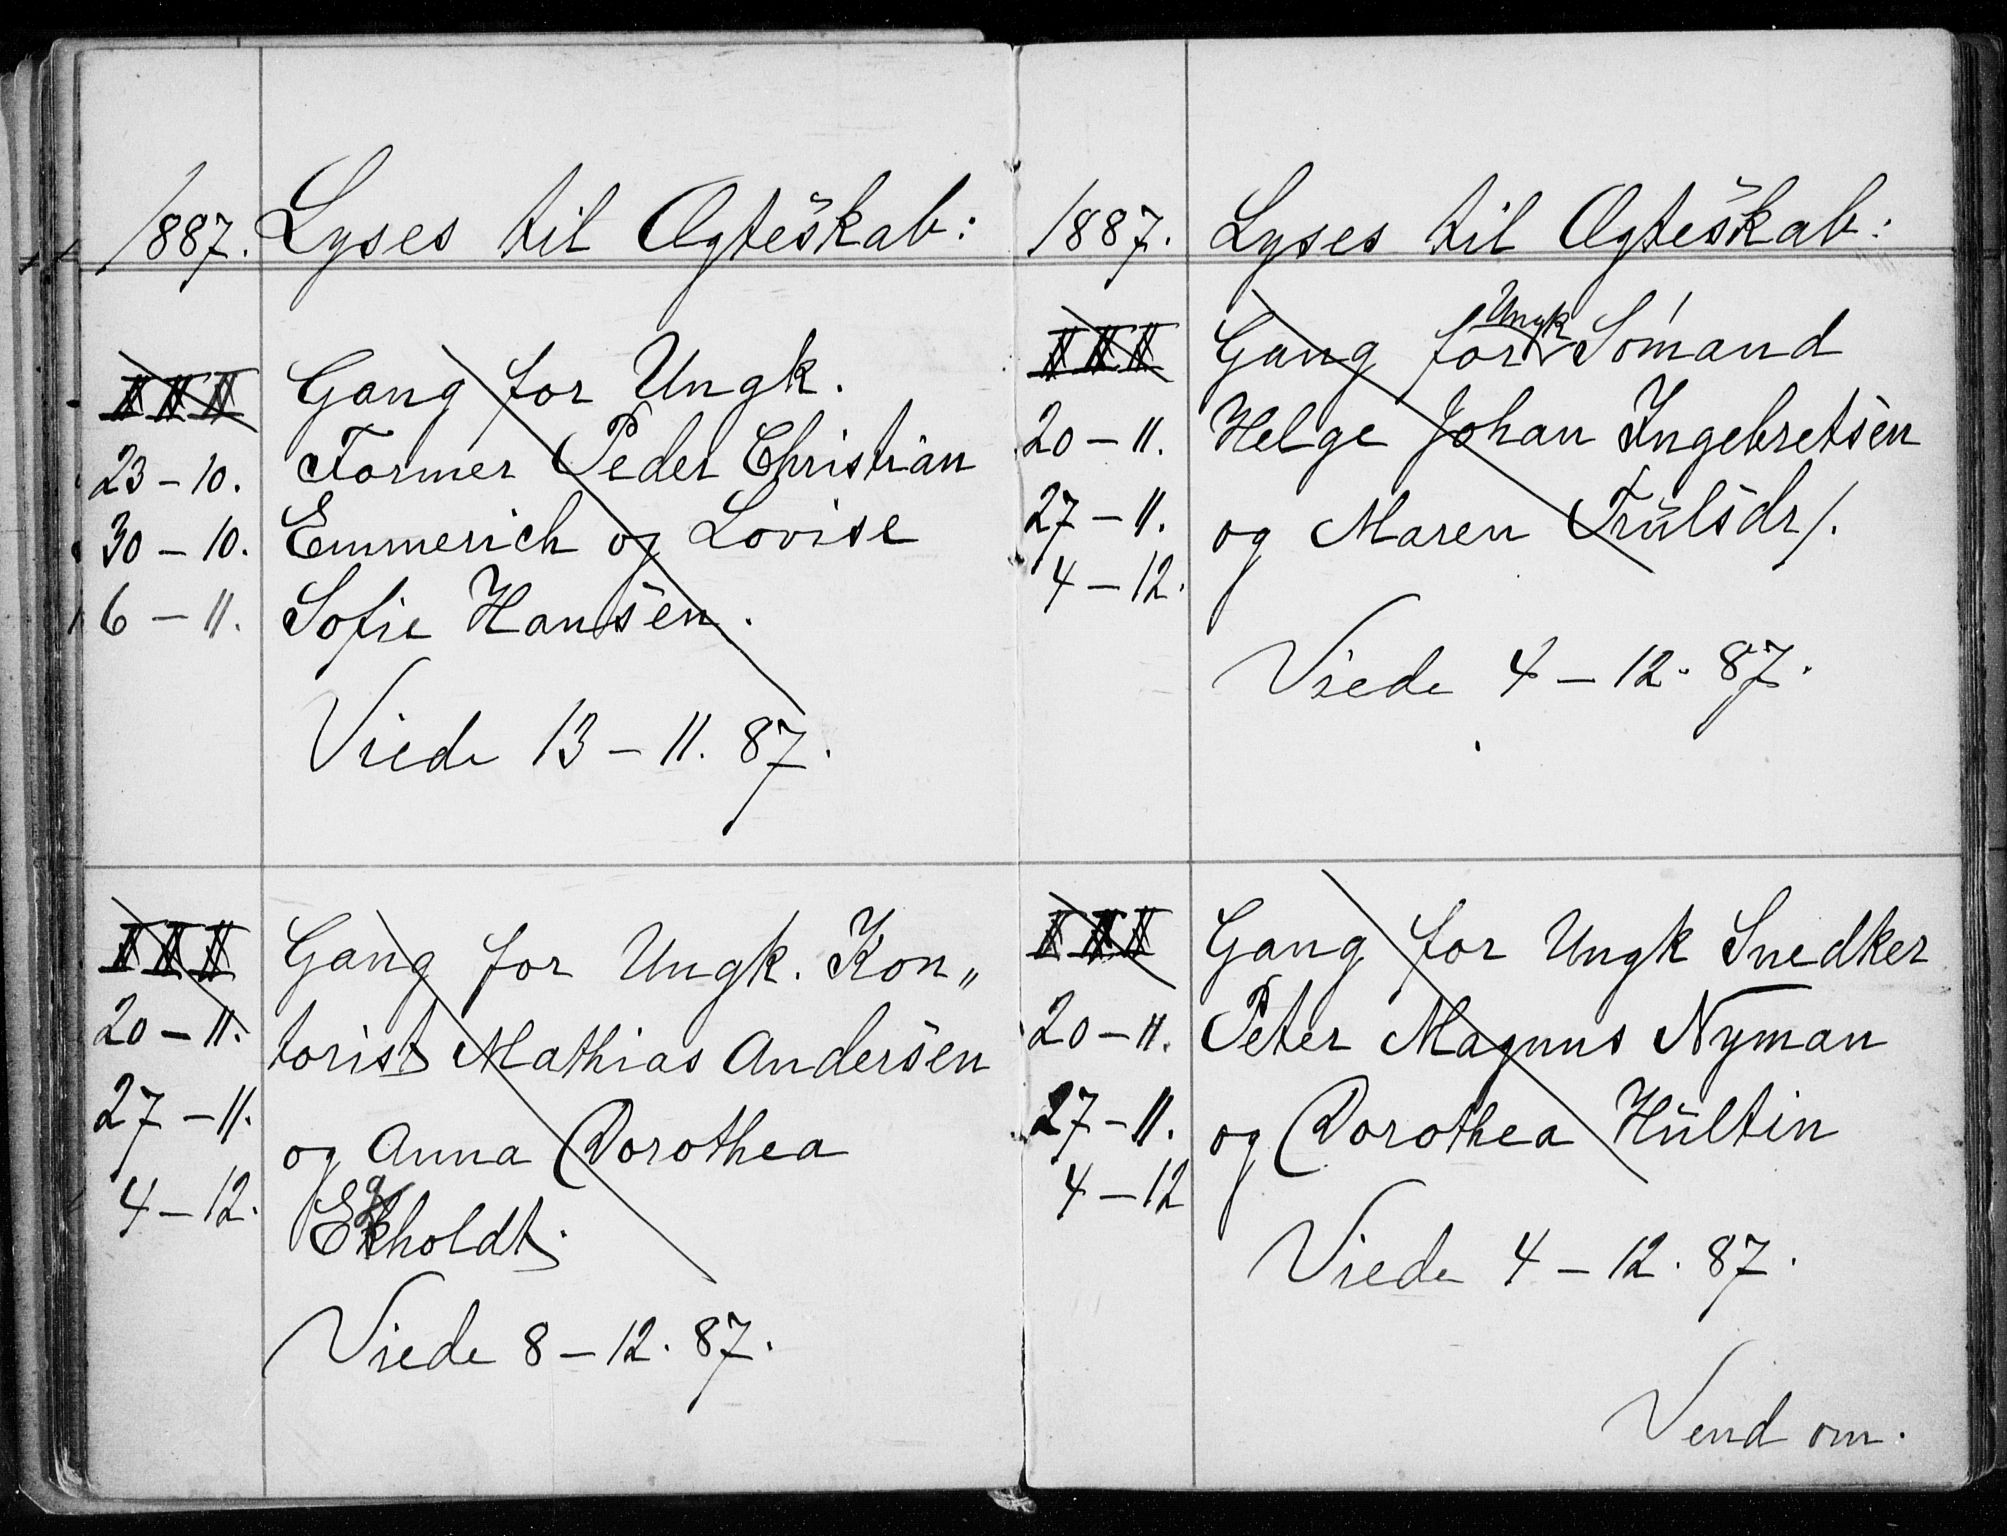 1887. Lyses til Ægteskab:
III Gang for Ungk.
23-10. Former Peder Christian
30-10. Emmerich og Lovise
6-11. Sofie Hansen.
Viede 13-11. 87.
III Gang for Ungk. Kon„
20-11. torist Mathias Andersen
27-11. og Anna Dorothea
4-12. Ekholdt.
Viede 8-12. 87.
1887. Lyses til Ægteskab:
III Gang for Ungk Sømand
20-11. Helge Johan Ingebretsen
27-11. og Maren Trulsdr/.
4-12.
Viede 4-12. 87.
III Gang for Ungk Snedker
20-11. Peter Magnus Nyman
27-11. og Dorothea Hultin
4-12
Viede 4-12. 87.
Vend om.